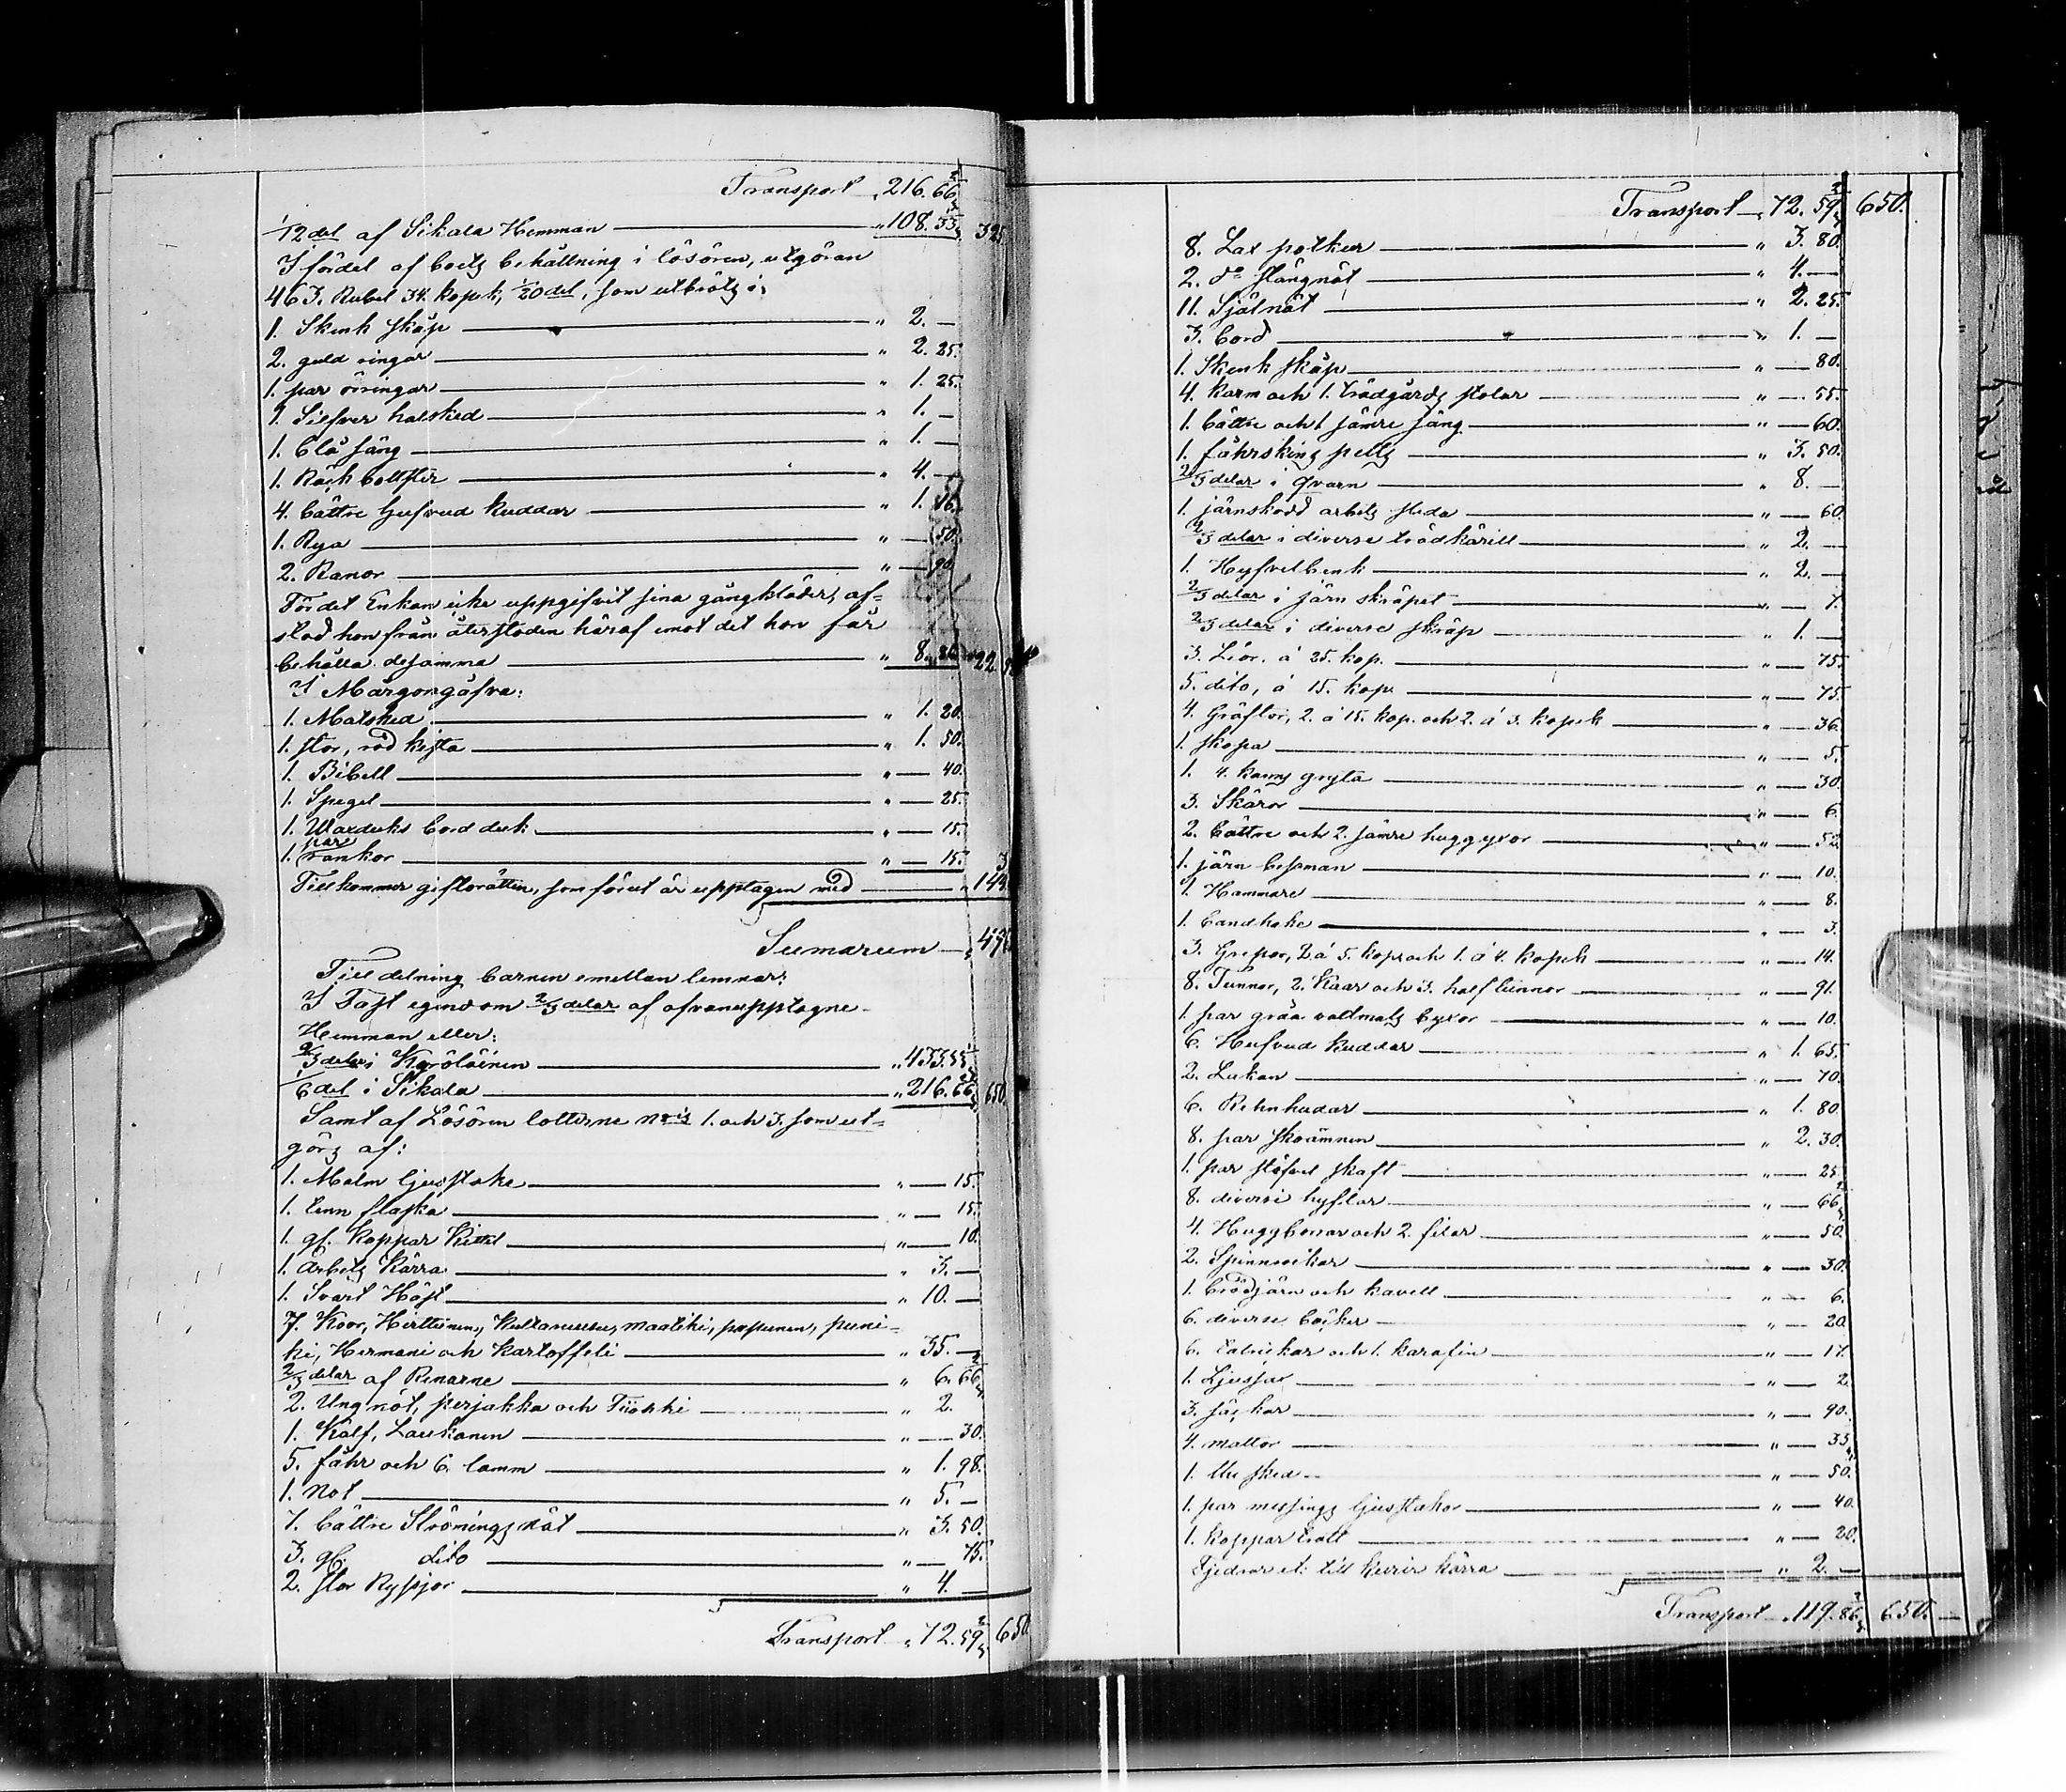 Transport „ 216. 66 2/3
1/12 del af Sikala Hemman „ 108. 33 1/3 325
I fördel af boets behållning i lösören, utgöran
463. Rubel 34. kopek, 1/20 del, som utbröts i:
1. Skenk skåp „ 2. —
2. guld ringar „ 2. 25.
1. par örringar „ 1. 25.
1. Silfver halsked „ 1. —
1. blå säng „ 1. —
1. Räck bollster „ 4. —
4. bättre hufvud kuddar „ 1.
1. Rya „ — 50.
2. Ranor „ — 90.
För det Enkan icke uppgifvit sina gångkläder, af=
stod hon från återstoden häraf emot det hon får
behålla desamma „ 8. 22.
I Morgongåfva:
1. Matsked „ 1. 20.
1. stor, röd kista „ 1. 50.
1. Bibell „ — 40.
1. Spegel „ — 25.
1. Waxduks bord duk „ — 15.
1. par Trankor „ — 15. 3
Tillkommer giftorätten, som förut är upptagen med „ 144
Summarum „ 49
Till delning barnen emellan lemnar:
I Fast egendom 2/3 delar af ofvanupptagne
Hemman eller:
2/3 delar i Kyröläinen „ 433. 33 1/3
1/6 del i Sikala „ 216. 66 2/3 650.
Samt af Lösören lotterne N:ris 1. och 3. som ut=
görs af:
1. Malm ljusstake „ — 15.
1. tenn flaska „ — 15.
1. gl. koppar kittel „ — 10.
1. Arbets kärra „ 3. —
1. Svart Häst „ 10. —
7. Koor, Hertuinen, Kultaneeteu, maatiki, papunen, puni=
ki, Hermani och Kartoffeli „ 35. —
2/3 delar af Renarne „ 6. 66 2/3
2. Ungnöt, perjakka och Tiiokki „ 2.
1. Kalf, Laukanen „ — 30.
5. fåhr och 6. lamm „ 1. 98.
1. Not „ 5. —
7. bättre Strömings nät „ 3. 50.
3. gl. dito „ — 75.
2. stor Ryssjor „ 4. —
Transport „ 72. 59 2/3 650
Transport „ 72. 59 2/3 650.
8. Lax potkur „ 3. 80.
2. d:o stångnät „ 4. —
11. Själnät „ 2. 25.
3. bord „ 1. —
1. Skenk skåp „ — 80.
4. karm och 1. trädgårds stolar „ — 55.
1. bättre och 1 sämre säng „ — 60.
1. fåhrskins pells „ 3. 50.
2/3 delar i qvarn „ 8. —
1. järnskodd arbets släda „ — 60.
2/3 delar i diverse trädkärill „ 2. —
1. Hyfvelbenk „ 2. —
2/3 delar i järn skräpet „ — 7.
2/3 delar i diverse skräp „ 1. —
3. Liör. á 25. kop. „ — 75.
5. dito, á 15. kop. „ — 75.
4. Gräftor, 2. á 15. kop. och 2. á 3. kopek „ — 36.
1. skopa „ — 5.
1. 4. kanns gryta „ — 30.
3. Skäror „ — 6.
2. bättre och 2. sämre huggyxor „ — 52.
1. järn bessman „ — 10.
1. Hammare „ — 8.
1. bandhake „ — 3.
3. Grepar, 2 á 5. kop. och 1. á 4. kopek „ — 14.
8. Tunnor, 2. Kaar och 3. half tunnor „ — 91.
1. par gråa valmals byxor „ — 10.
6. Hufvud kuddar „ 1. 65.
2. Lakan „ — 70.
6. Rehnhudar „ 1. 80.
8. par skoämnen „ 2. 30.
1. par stöfvel skaft „ — 25.
8. diverse hyflar „ — 66 2/3
4. Huggbonar och 2. filar „ — 50.
2. Spinnrockar „ — 30.
1. brödjärn och kavell „ — 6.
6. diverse böcker „ — 20.
6. talrickar och 1. karafin „ — 17.
1. Ljussax „ — 2.
3. säckar „ — 90.
4. mattor „ — 33.
1. the sked „ — 50.
1. par messings ljusstakar „ — 40.
1. koppar tratt „ — 20.
Fjedrar et. till kurir kärra „ 2. —
Transport „ 119. 86 2/3 650. —